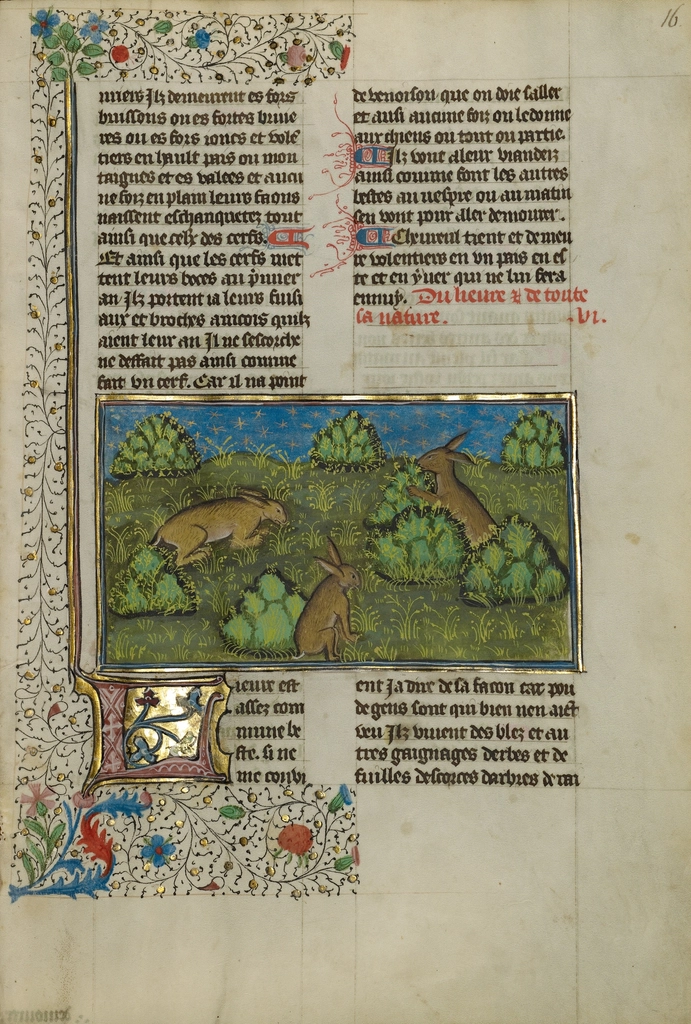 16
niers Ilz demeurent es fors
buissons ou es fortes bruie
res ou es fors ioncs et volē
tiers en hault pais ou mon
taignes et es valees et aucu
ne foiz en plain leurs faons
naissent eschanquetez tout
ainsi que celx des cerfs.
Et ainsi que les cerfs met
tent leurs boces au p̄mier
an Ilz portent ia leurs fusi
aux et broches ancois quilz
aient leur an Il ne sescorche
ne deffait pas ainsi comme
fait vn cerf. Car il na point
de venoison que on doie saller
et aussi aucune foiz on le donne
aux chiens ou tout ou partie.
Ilz vont a leur viandeiz
ainsi comme font les autres
bestes au vespre ou au matin
sen vont pour aler demourer.
Cheureul tient et demeu
re volentiers en vn pais en es
te et en yuer qui ne lui fera
ennuy. Du lieure & de toute
sa nature. .VI.
Lieure est
assez com
mune be
ste. si ne
me convi
ent Ja dire de sa facon car pou
de gens sont qui bien nen aiēt
veu Ilz viuent des blez et au
tres gaignages derbes et de
fuilles descorces darbres de rai